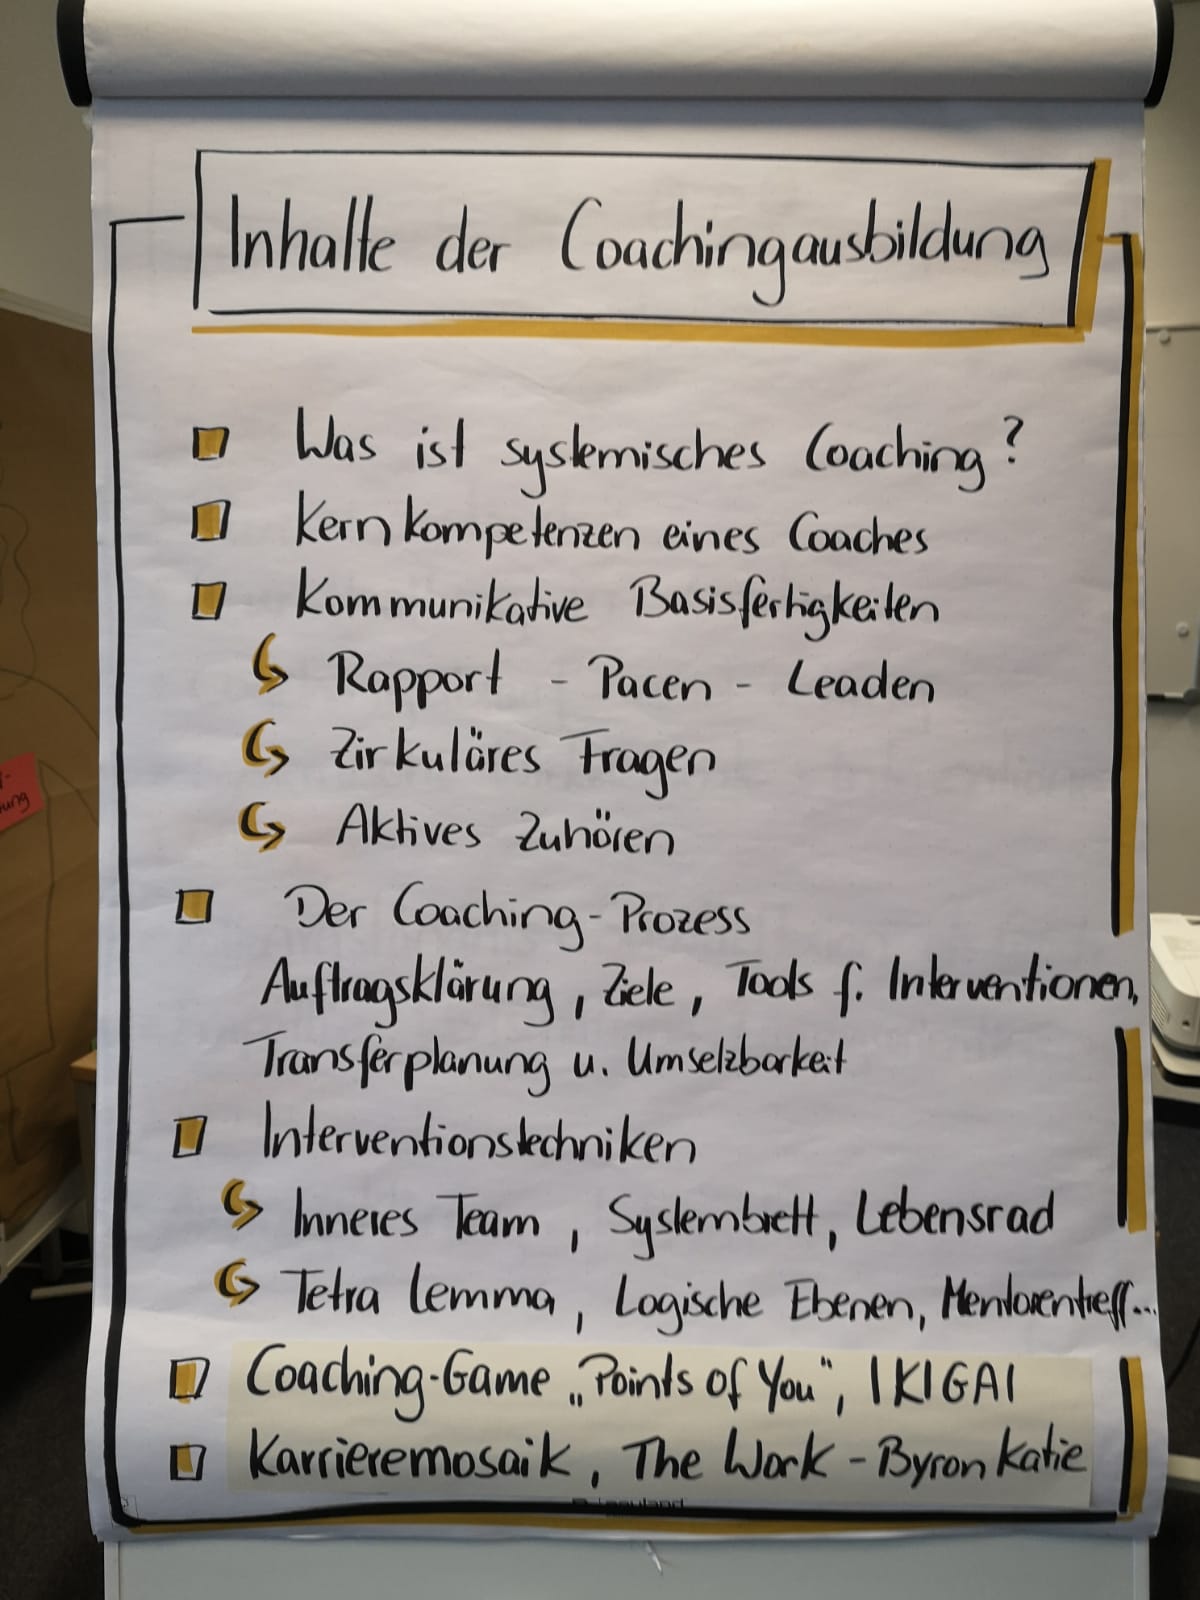 Inhalte der Coachingausbildung
Was ist systemisches Coaching?
Kernkompetenzen eines Coaches
Kommunikative Basisfertigkeiten
Rapport - Pacen - Leaden
Zirkuläres Fragen
Aktives Zuhören
Der Coaching-Prozess
Auftragsklärung, Ziele, Tools f. Interventionen,
Transferplanung u. Umsetzbarkeit
Interventionstechniken
Inneres Team, Systembrett, Lebensrad
Tetra Lemma, Logische Ebenen, Mentorentreff...
Coaching-Game „Points of You“, IKIGAI
Karrieremosaik, The Work - Byron Katie